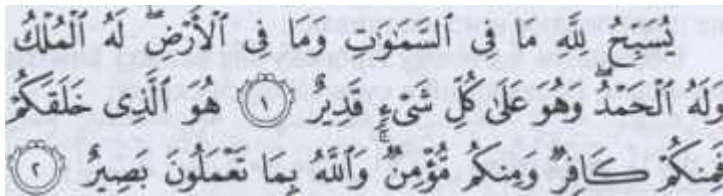 يُسَبِّحُ لِلَّهِ مَا فِى السَّمَٰوَٰتِ وَمَا فِى الْأَرْضِ ۖ لَهُ الْمُلْكُ
وَلَهُ الْحَمْدُ ۖ وَهُوَ عَلَىٰ كُلِّ شَىْءٍ قَدِيرٌ ۝١ هُوَ الَّذِى خَلَقَكُمْ
فَمِنكُمْ كَافِرٌ وَمِنكُم مُّؤْمِنٌ ۚ وَاللَّهُ بِمَا تَعْمَلُونَ بَصِيرٌ ۝٢